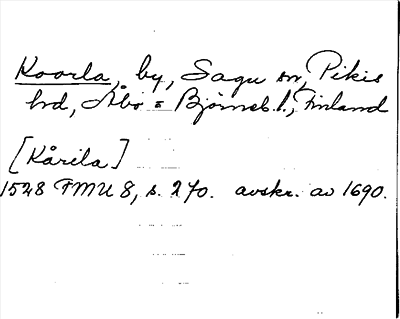 Koorla, by, Sagu sn, Pikis
hd, Åbo = Björneb. l., Finland
[Kårila]
1528 FMU 8, s. 270. avskr. av 1690.